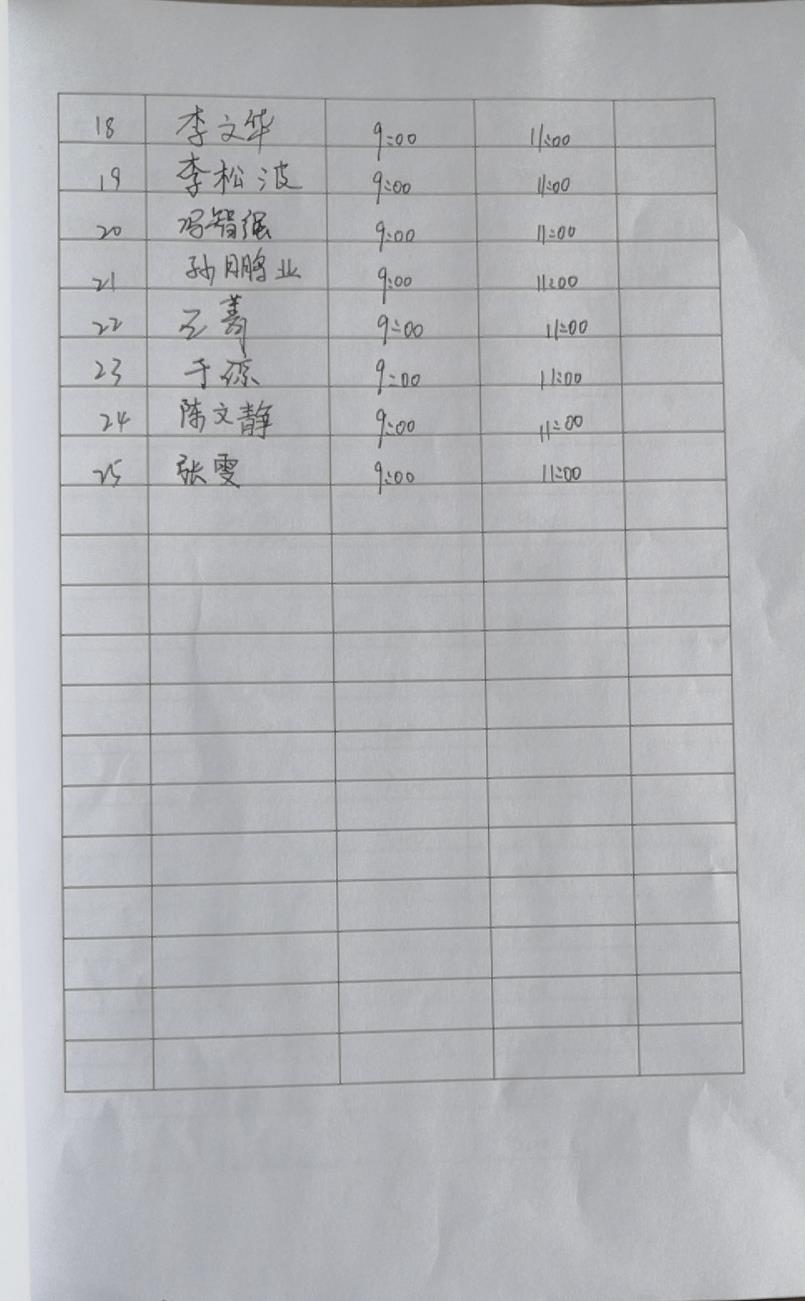 18 李文华 9:00 11:00
19 李松波 9:00 11:00
20 冯智强 9:00 11:00
21 孙鹏业 9:00 11:00
22 王菁 9:00 11:00
23 于琼 9:00 11:00
24 陈文静 9:00 11:00
25 张雯 9:00 11:00